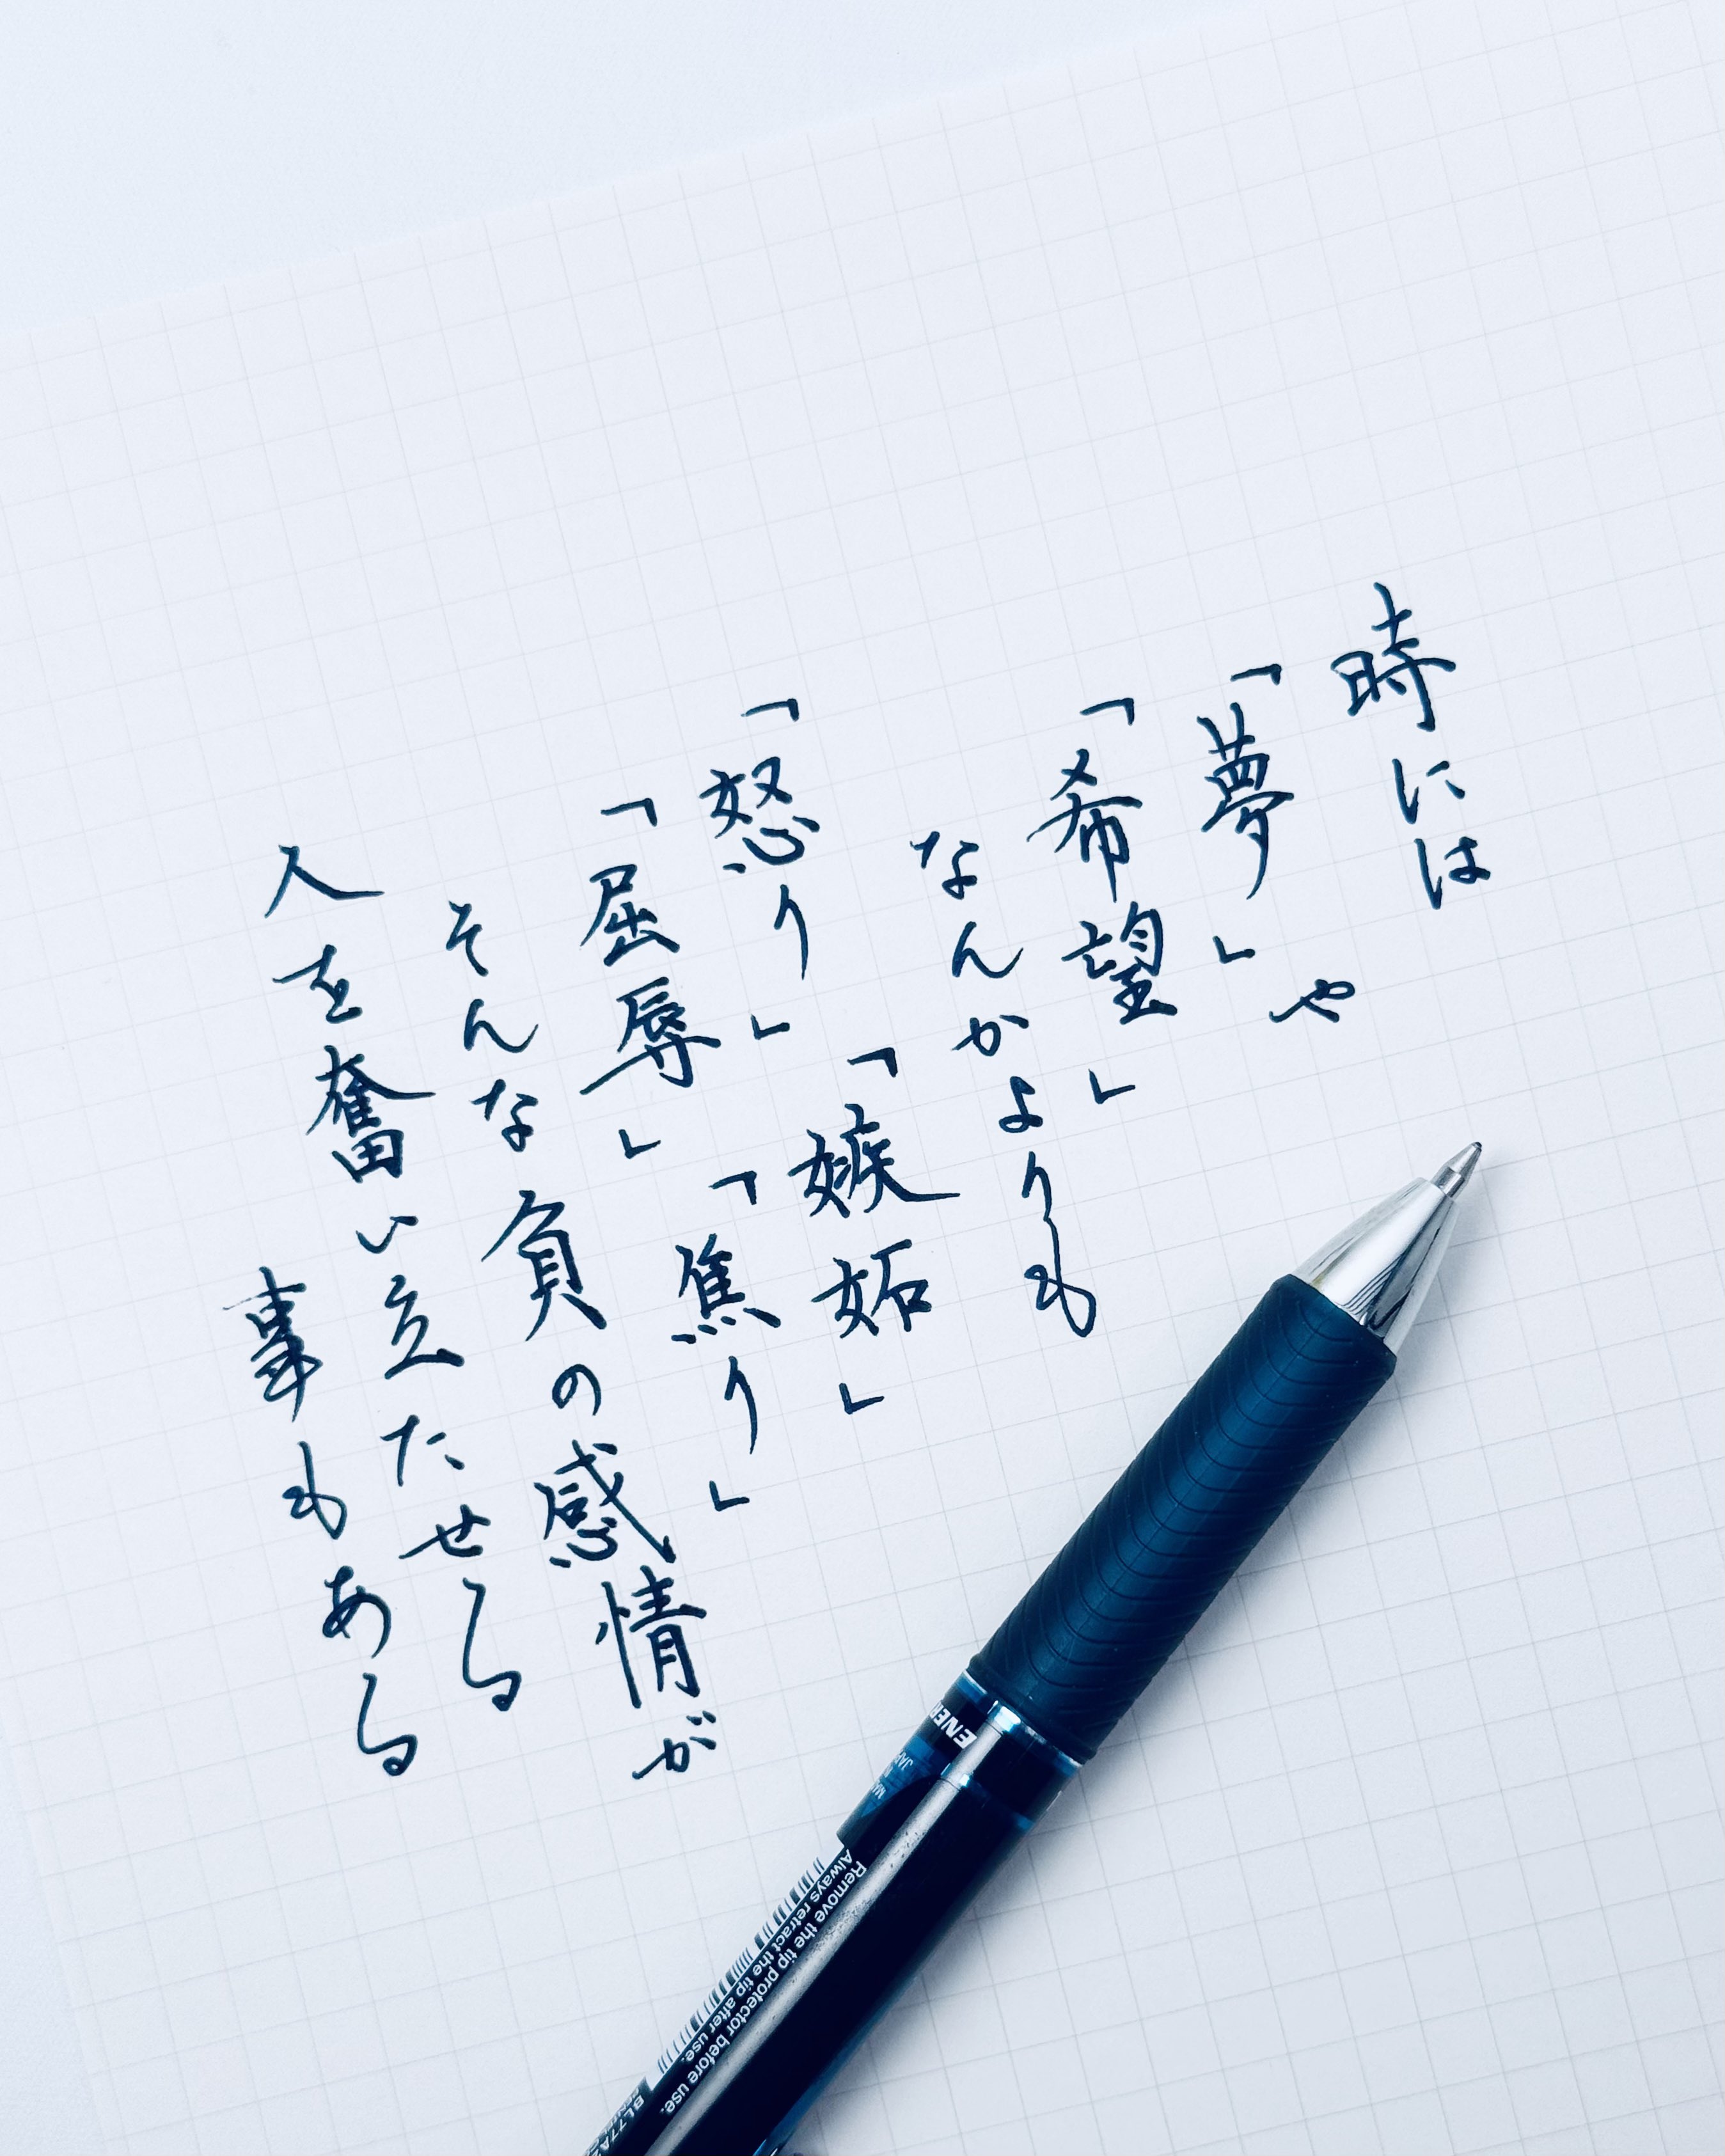 時には
「夢」や
「希望」
なんかよりも
「怒り」「嫉妬」
「屈辱」「焦り」
そんな負の感情が
人を奮い立たせる
事もある
ENER
Remove the tip protector before use.
Always retract the tip after use.